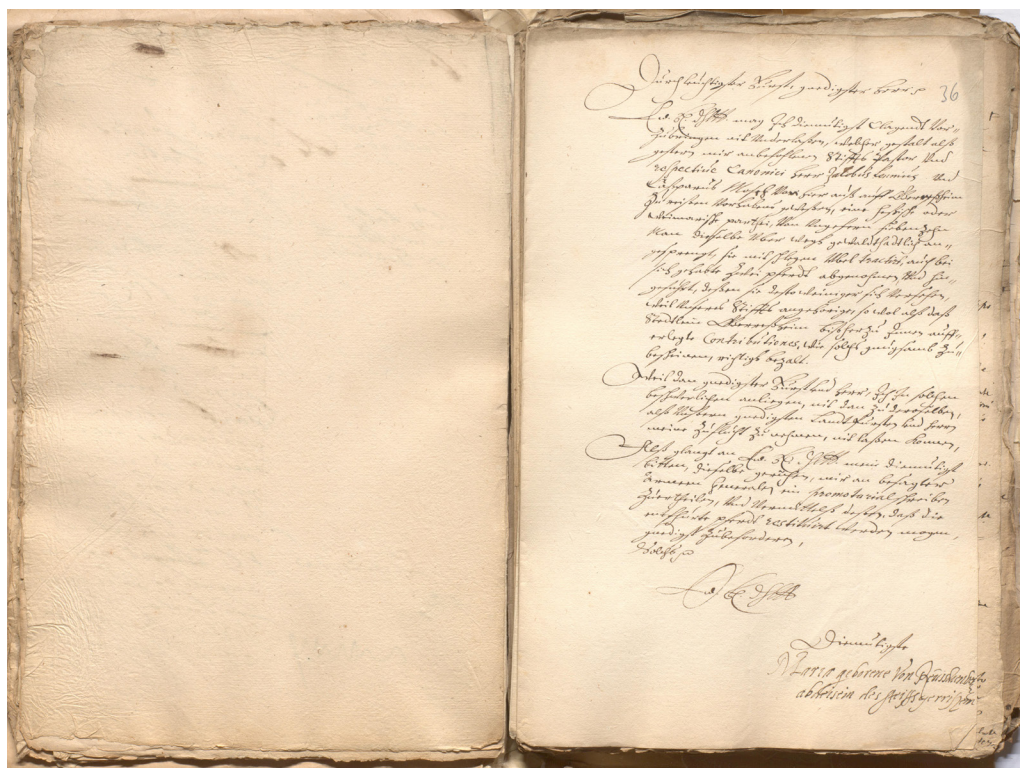 Durchleuchtigster Furst, gnedigster herr p
36
mag Ich diemütigst clagendt vor-
zubringen nit underlaßen, welcher gestalt alß
gestern mir anbefohlnen Stiffts Pastor und
respectivè Canonici herr Jacobus und
Casparus von hier auß auff
zu reißen vorhabens geweßen, eine heßische oder
Weimarische parthei, von ungefehr siebenzehn
Man dieselbe uber wegs gewaldthedtlich an-
gesprengt, sie mit schlegen ubel tractirt, auch bei
sich gehabte zwei pferdt abgenohmen, und hin-
gefuhrt, deßen sie desto weiniger sich versehen,
weil unsers Stiffts angehörige, so wol alß daß
Stedtlein bißherzu Innen auff-
erlegte Contributiones, wie solchs gnughamb zu
bescheinen, richtigh bezalt.
Weil dan gnedigster Furst und herr, Ich in solchen
beschwerlichen anliegen, nit dan zu deroselben,
alß unßern gnedigsten Landtfursten und herrn
meine zuflucht zu nehmen, wiß laßen konnen,
Alß glangt an mein diemütigst
bitten, dieselbe geruhen, mir an besagter
Armeen Generalen ein promotorial schreiben
zuertheilen, und vermittelß deßen, daß die
entfhurte pferdt restituirt werden mogen,
gnedigst zubefordern,
Solchs p
Diemütigste
Maria geborene von
abdeisin des stiffts gerrißheim